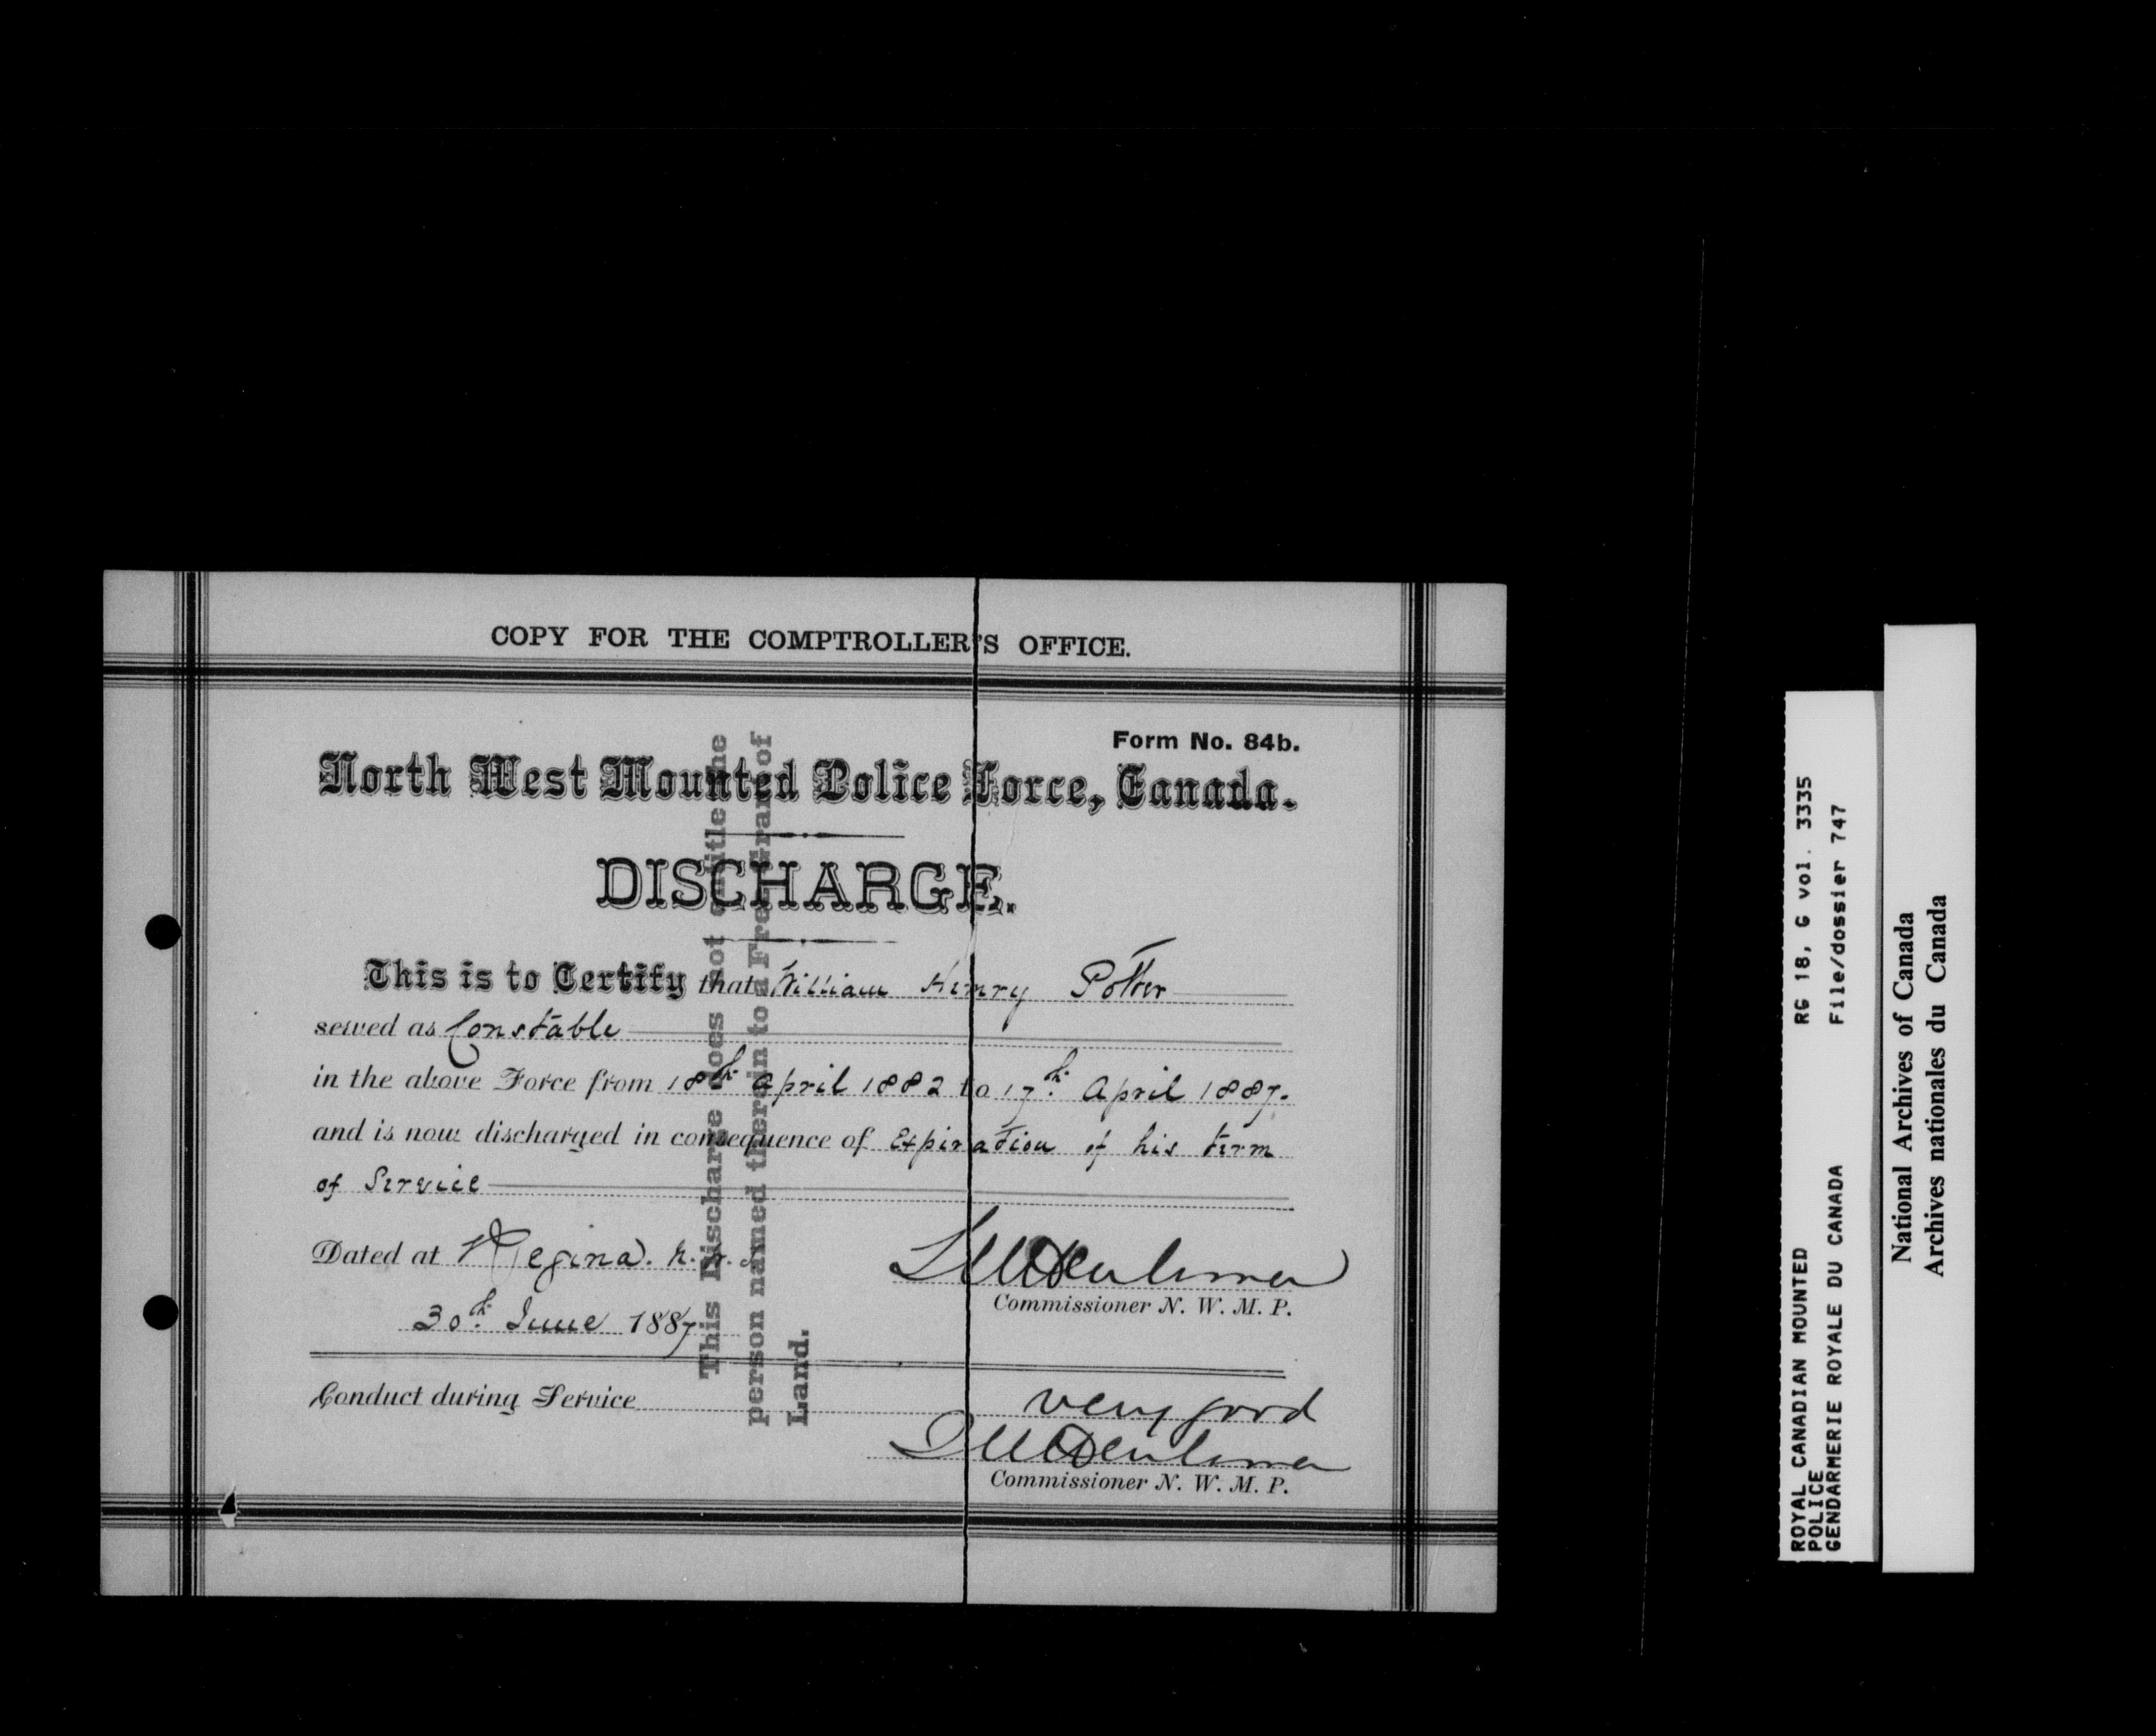 COPY FOR THE COMPTROLLER'S OFFICE.
Form No. 84b.
North West Mounted Police Force, Canada.
DISCHARGE.
This is to Certify that William Henry Potter
served as Constable
in the above Force from 18th April 1882 to 17th April 1887.
and is now discharged in consequence of Expiration of his term
of Service
Dated at Regina.
30th June 1887
Commissioner N. W. M. P.
Conduct during Service very good
Commissioner N. W. M. P.
This Discharge does not entitle the
person named therein to a Free Grant of
Land.
ROYAL CANADIAN MOUNTED RG 18, G vol. 3335
POLICE
GENDARMERIE ROYALE DU CANADA File/dossier 747
National Archives of Canada
Archives nationales du Canada